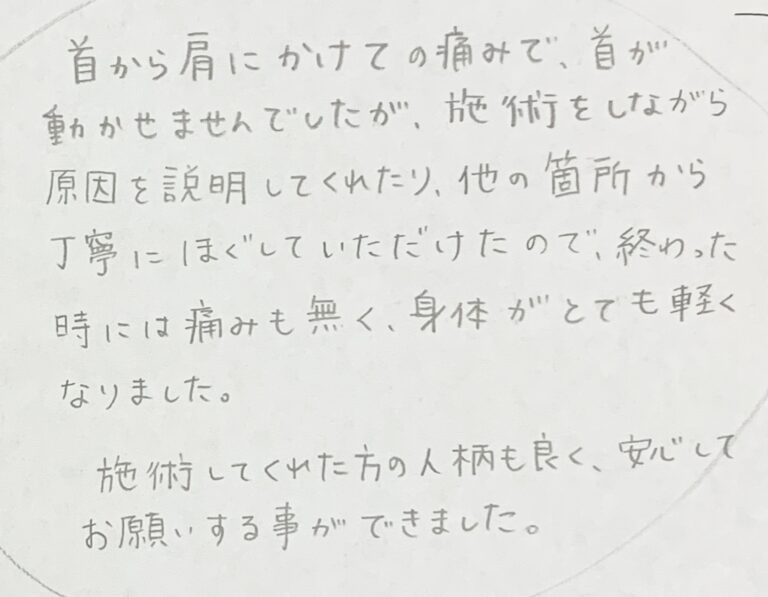 首から肩にかけての痛みで、首が
動かせませんでしたが、施術をしながら
原因を説明してくれたり、他の箇所から
丁寧にほぐしていただけたので、終わった
時には痛みも無く、身体がとても軽く
なりました。
施術してくれた方の人柄も良く、安心して
お願いする事ができました。